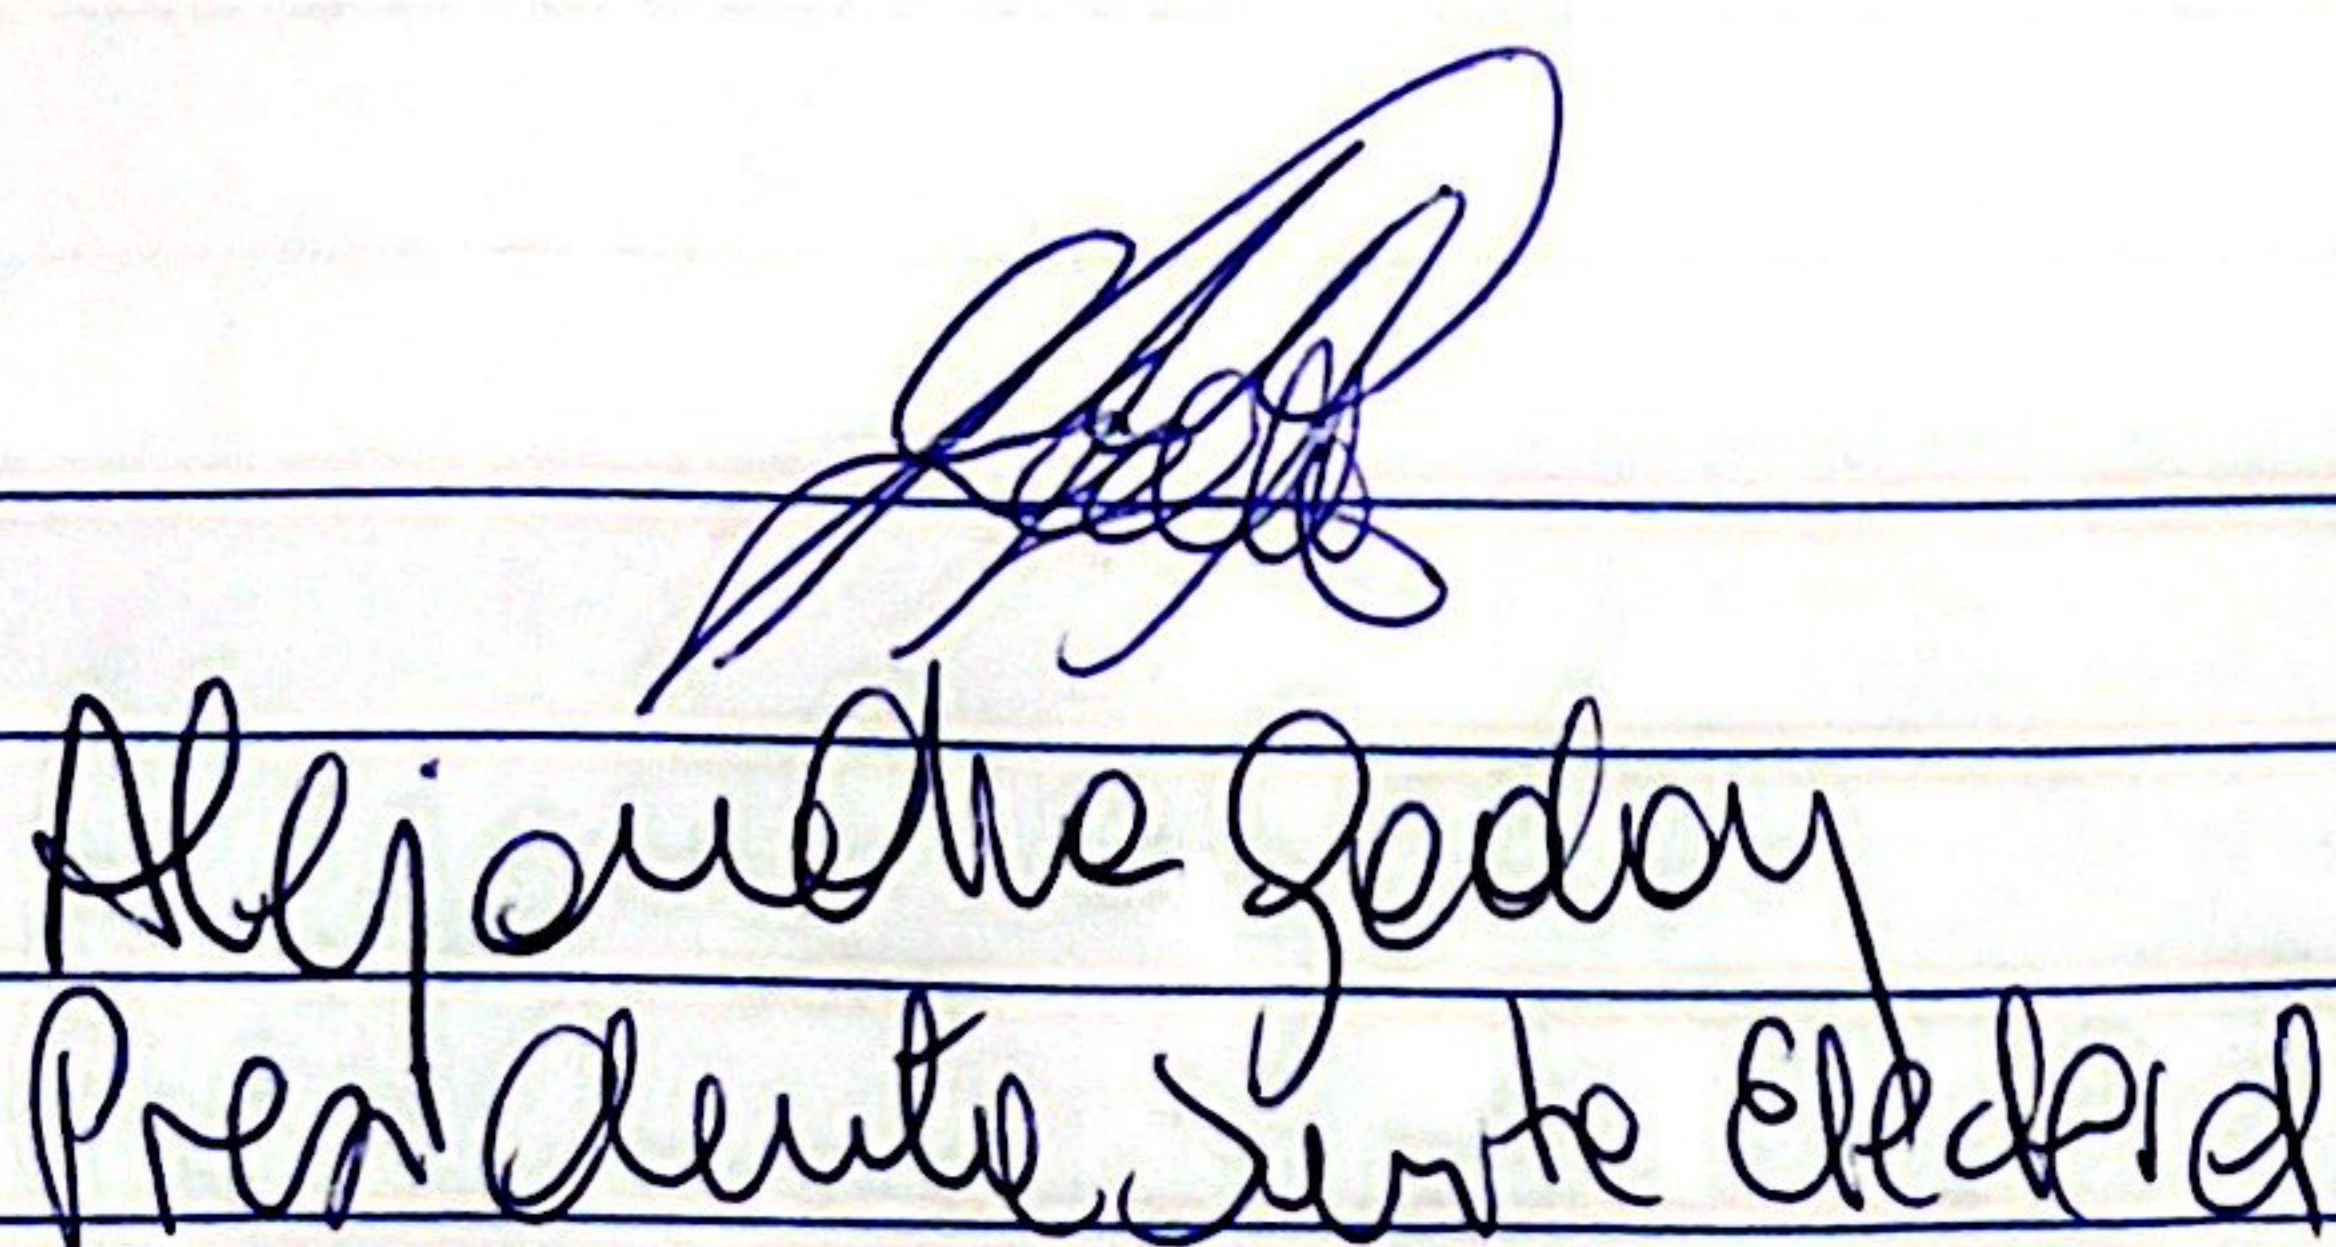 Alejandra Godoy
Presidente Junta Electoral